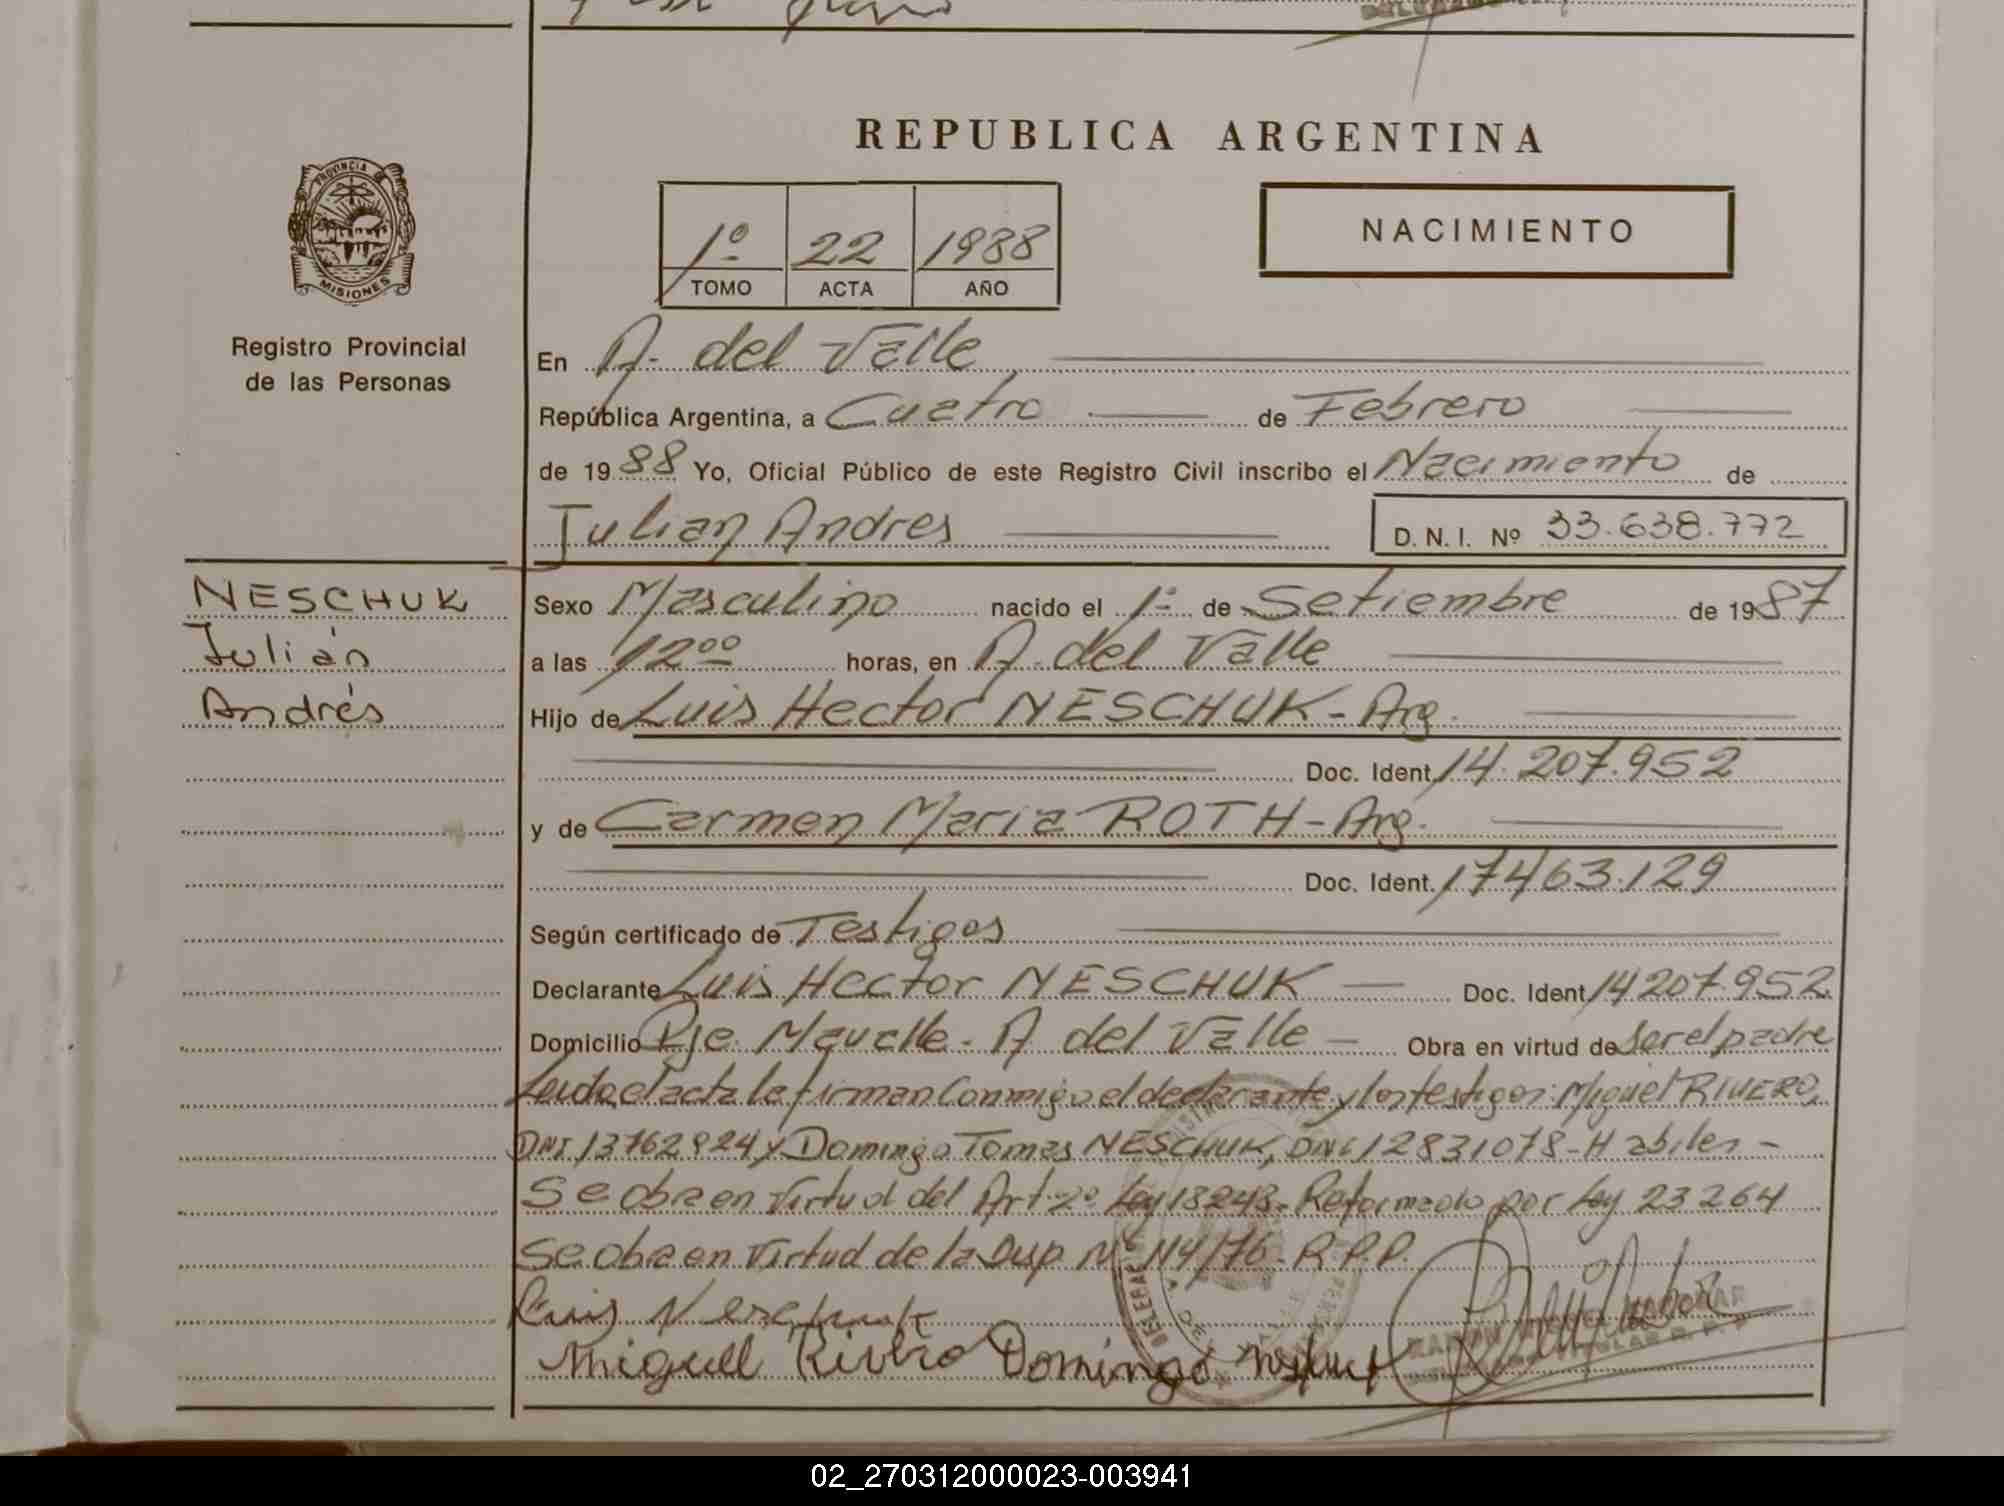 REPUBLICA ARGENTINA
PROVINCIA DE
MISIONES
Registro Provincial
de las Personas
1º 22 1988
TOMO ACTA AÑO
NACIMIENTO
En A. del Valle
República Argentina, a Cuatro de Febrero
de 1988 Yo, Oficial Público de este Registro Civil inscribo el Nacimiento de
Julian Andres D. N. I. Nº 33.638.772
NESCHUK
Julián
Andrés
Sexo Masculino nacido el 1º de Setiembre de 1987
a las 12 00 horas, en A. del Valle
Hijo de Luis Hector NESCHUK - Arg.
Doc. Ident. 14.207.952
y de Carmen Maria ROTH - Arg.
Doc. Ident. 17463.129
Según certificado de Testigos
Declarante Luis Hector NESCHUK Doc. Ident. 14207.952
Domicilio Pje. - A del Valle Obra en virtud de ser el padre
Leida el acta la firman Conmigo el declarante y los testigos: Miguel RIVERO,
DNI 13762924 y Domingo Tomas NESCHUK, DNI 12831078 - Habiles -
Se obra en Virtud del Art 2º Ley 18248 - Reformado por Ley 23264
Se obra en Virtud de la Disp Nº 114/76 - R.P.P.
Luis Neschuk
Miguel Rivero Domingo
02_270312000023-003941